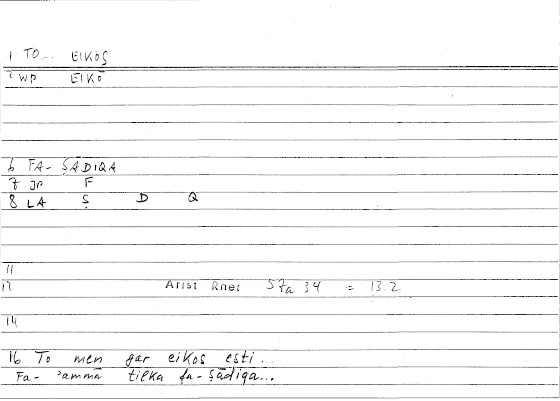 1 TO... EIKOS
2 WP EIKŌ
6 FA-ṢĀDIQA
7 JP F
8 LA Ṣ D Q
11
12 Arist Rhet 57a 34 = 13.2
14
16 To men gar eikos esti...
Fa-'ammā tilka fa-ṣādiqa...